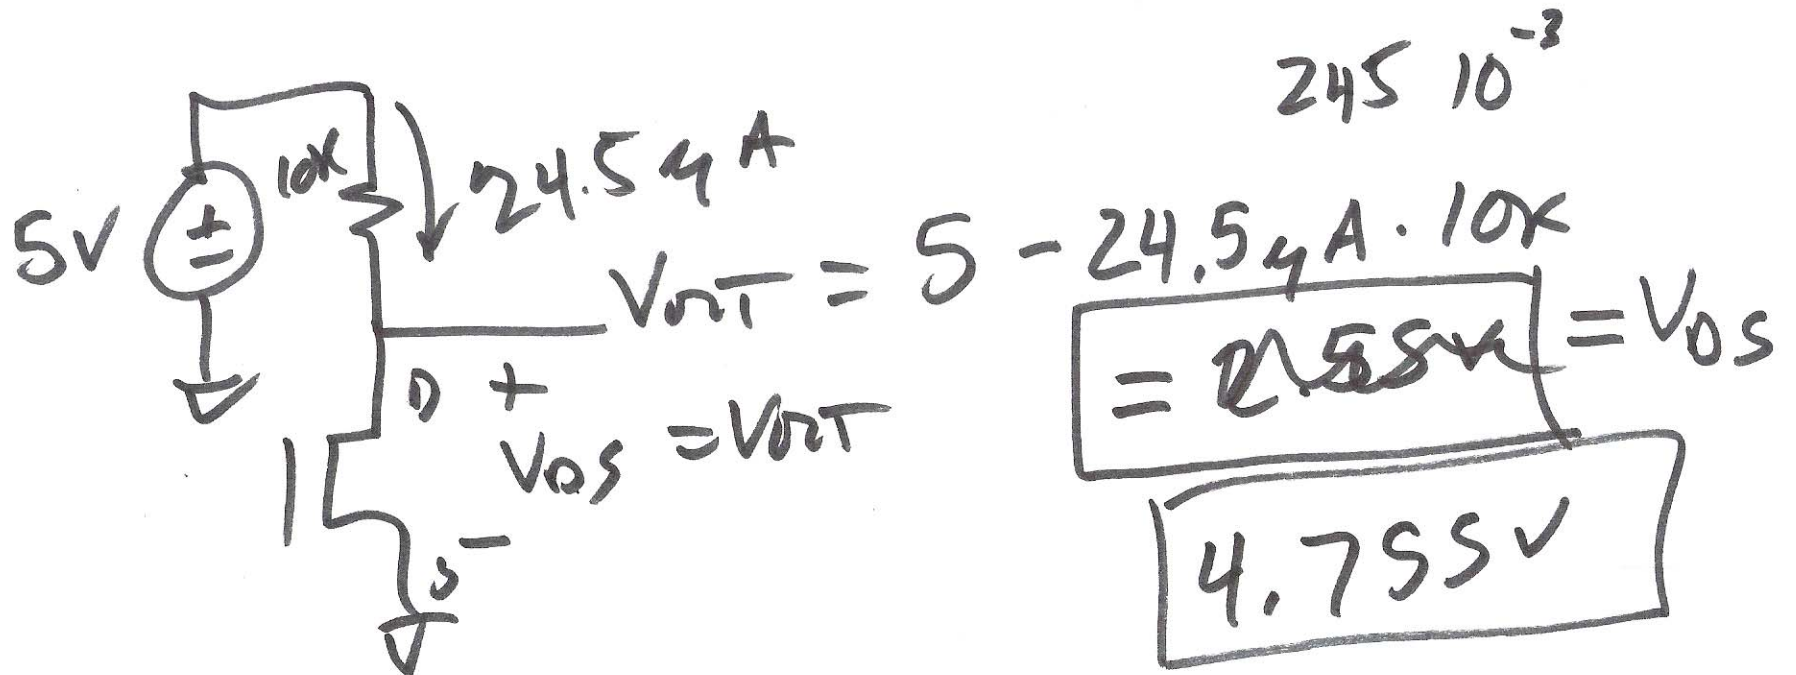 245 10⁻³
10K
24.5 μA
5V
VOUT = 5 - 24.5 μA · 10K
= VDS
D +
VDS = VOUT
S -
4.755V